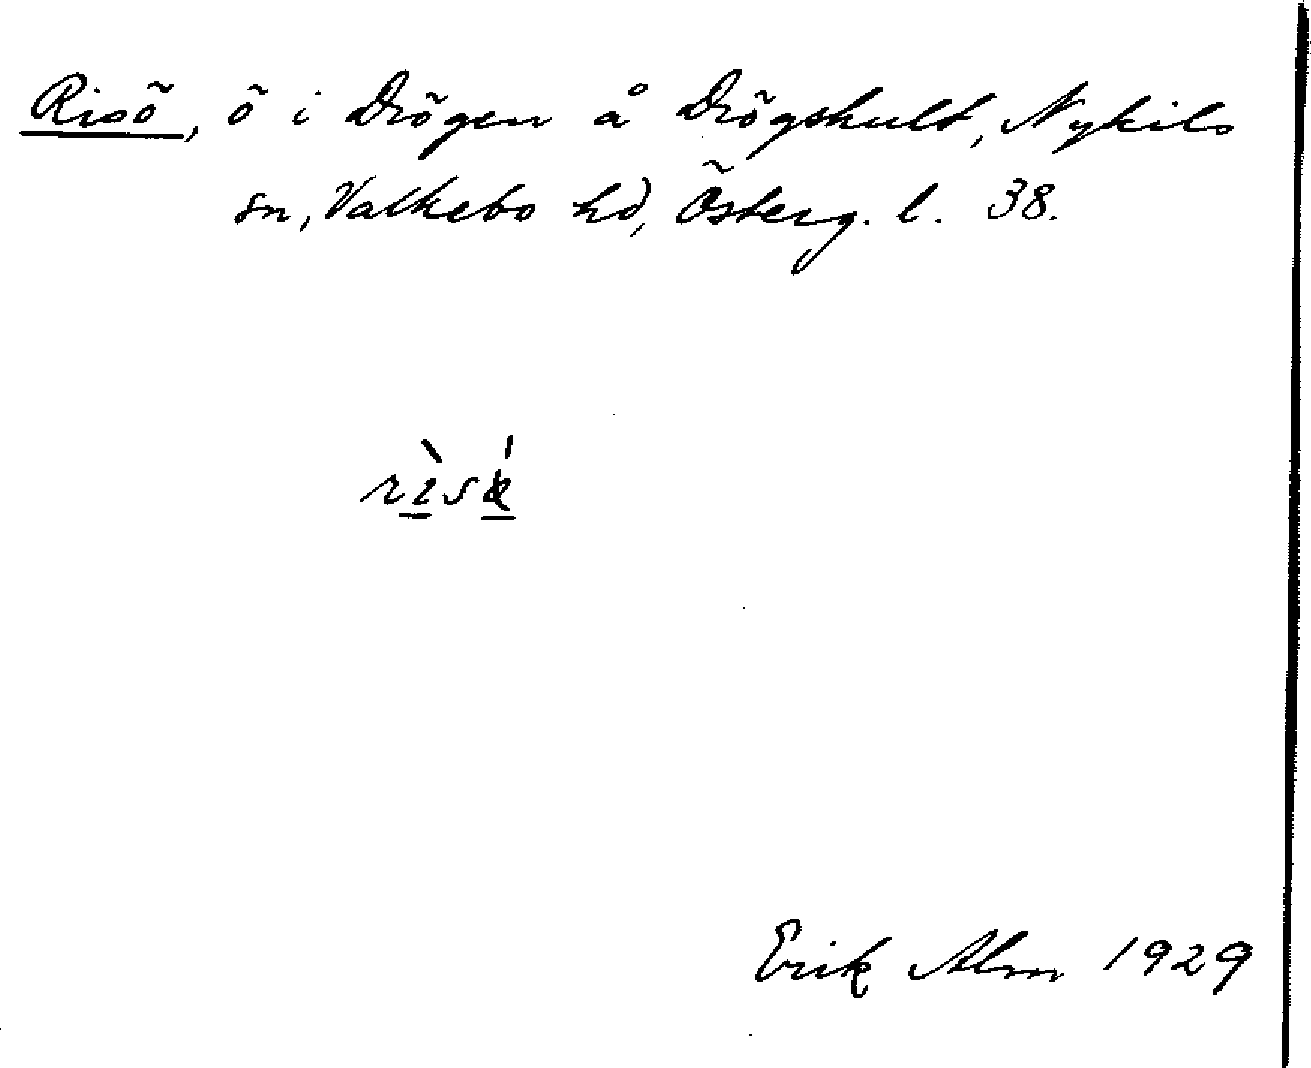 Risö, ö i Drögen å Drögshult, Nykils
sn, Valkebo hd, Österg. l. 38.
Erik Alm 1929